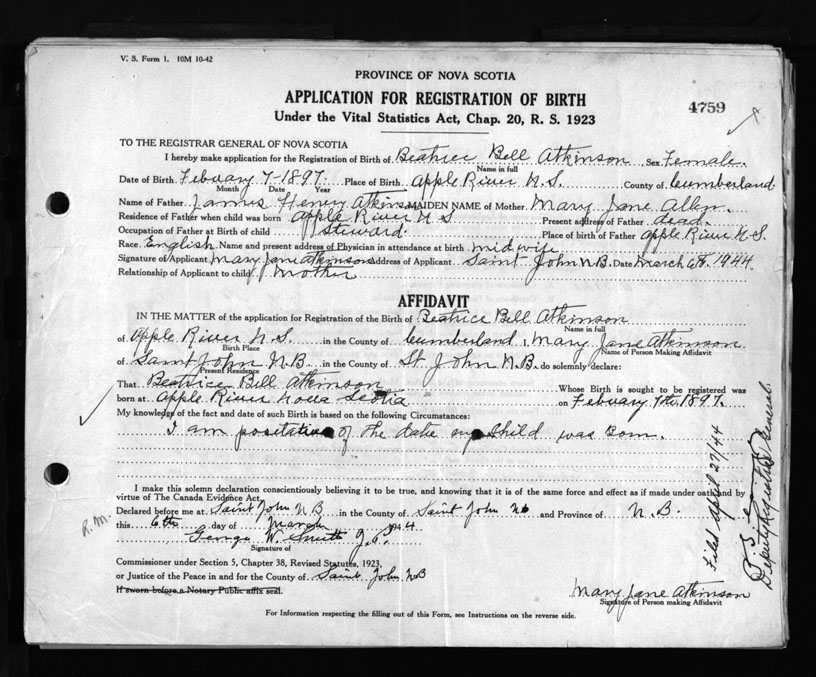 V. S. Form 1. 10M 10-42
PROVINCE OF NOVA SCOTIA
APPLICATION FOR REGISTRATION OF BIRTH
4759
Under the Vital Statistics Act, Chap. 20, R. S. 1923
TO THE REGISTRAR GENERAL OF NOVA SCOTIA
I hereby make application for the Registration of Birth of Beatrice Bell Atkinson Sex Female.
Name in full
Date of Birth Febuary 7-1897. Place of Birth Apple River N.S. County of Cumberland
Month Date Year
Name of Father James Henry Atkinson MAIDEN NAME of Mother Mary Jane Allen.
Residence of Father when child was born Apple River N S Present address of Father dead.
Occupation of Father at Birth of child Steward. Place of birth of Father Apple River N.S.
Race English Name and present address of Physician in attendance at birth midwife
Signature of Applicant Mary Jane Atkinson Address of Applicant Saint John N.B. Date March 6th. 1944.
Relationship of Applicant to child Mother
AFFIDAVIT
IN THE MATTER of the application for Registration of the Birth of Beatrice Bell Atkinson
Name in full
of Apple River N.S. in the County of Cumberland I, Mary Jane Atkinson
Birth Place Name of Person Making Affidavit
of Saint John N.B. in the County of St John N.B. do solemnly declare:
Present Residence
That Beatrice Bell Atkinson Whose Birth is sought to be registered was
born at Apple River Nova Scotia on Febuary 7th. 1897.
My knowledge of the fact and date of such Birth is based on the following Circumstances:
I am of the date my Child was Born.
I make this solemn declaration conscientiously believing it to be true, and knowing that it is of the same force and effect as if made under oath and by
virtue of The Canada Evidence Act.
Declared before me at Saint John N B in the County of Saint John NB and Province of N.B.
this 6th day of March 1944
R.M.
George W. Smith J.P.
Signature of
Commissioner under Section 5, Chapter 38, Revised Statutes, 1923,
or Justice of the Peace in and for the County of Saint John NB
If sworn before a Notary Public affix seal.
Mary Jane Atkinson
Signature of Person making Affidavit
For Information respecting the filling out of this Form, see Instructions on the reverse side.
Filed April 27/44
Deputy Registrar General.